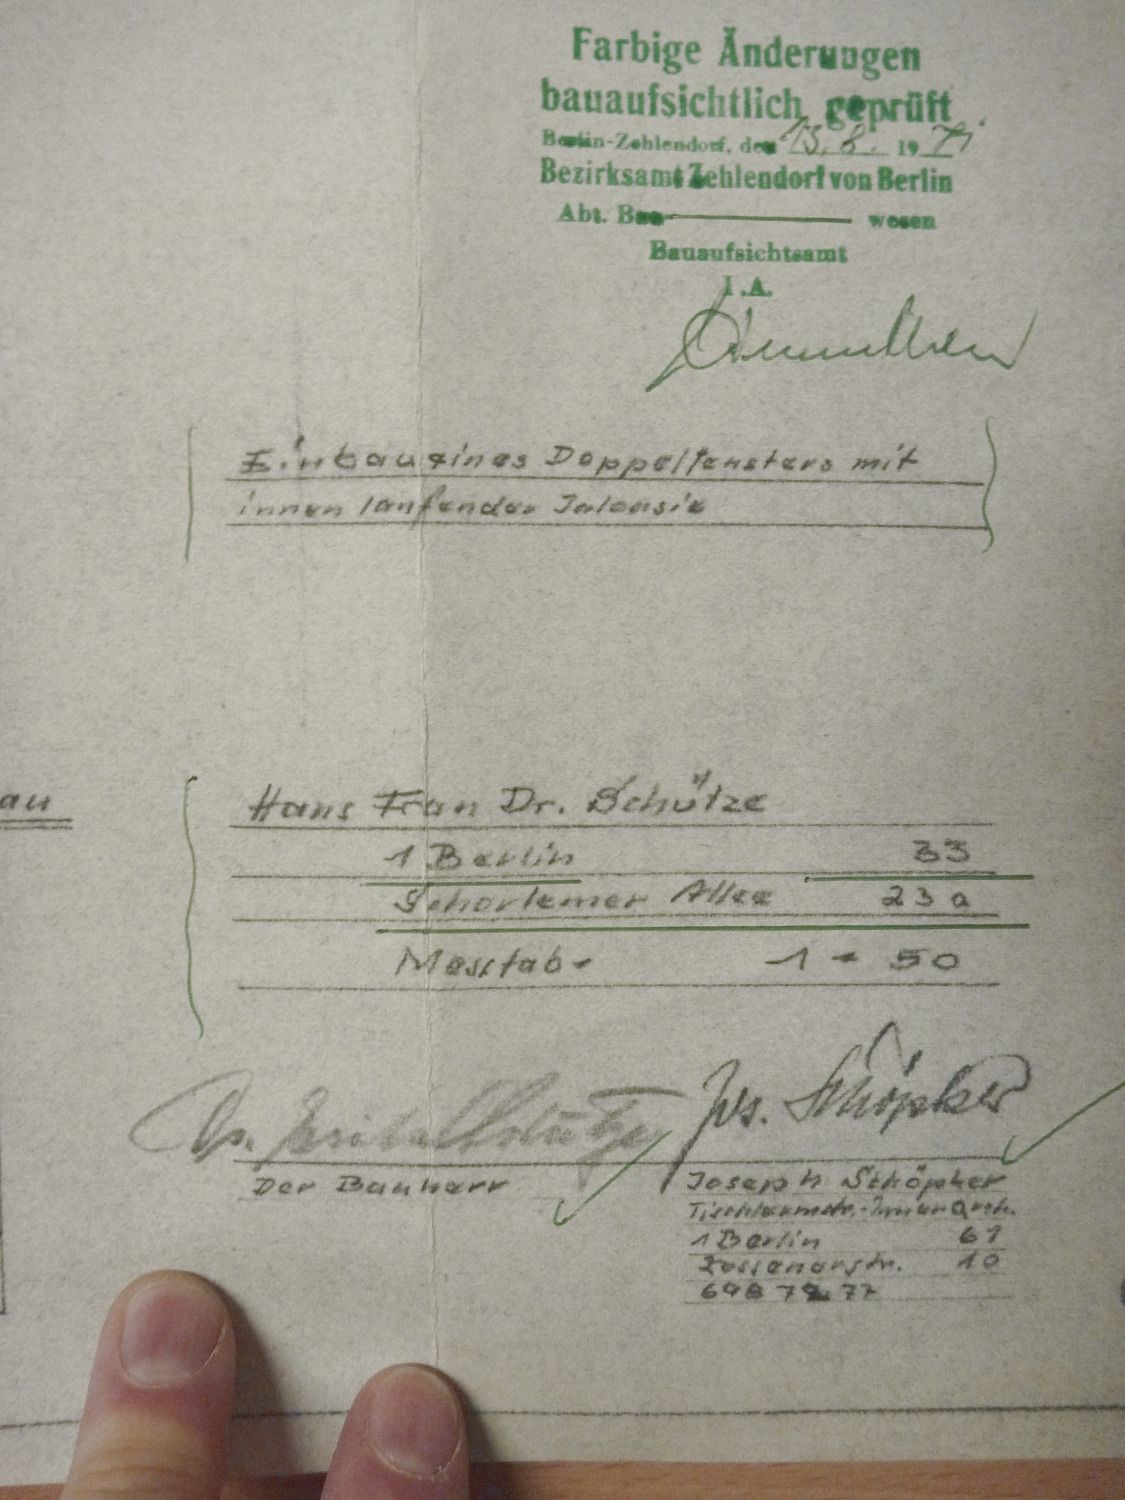 Farbige Änderungen
bauaufsichtlich geprüft
Berlin-Zehlendorf, den 13.8. 1971
Bezirksamt Zehlendorf von Berlin
Abt. Bau wesen
Bauaufsichtsamt
I.A.
Einbau eines Doppelfensters mit
innen laufender Jalousie
au
Haus Frau Dr. Schütze
1 Berlin 33
Schorlemer Allee 23a
Masstab- 1 - 50
Dr. Schütze Jos. Schöpker
Der Bauherr
Joseph Schöpker
Tischlermstr.-Innenarch.
1 Berlin 61
10
698 72 77